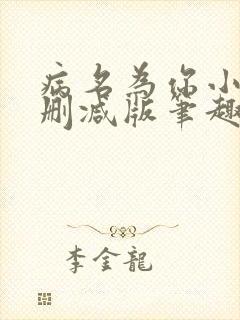 病名为你小
删减版笔趣
李金龍